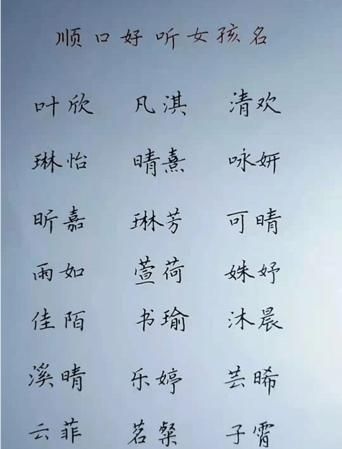 顺口好听女孩名
叶欣 凡淇 清欢
琳怡 晴熹 咏妍
昕嘉 琳芳 可晴
雨如 萱荷 姝妤
佳陌 书瑜 沐晨
溪晴 乐婷 芸晞
云菲 茗粲 子霄